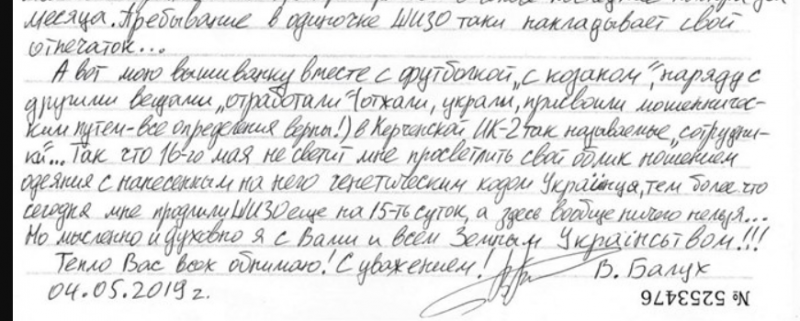 месяца. Пребывание в одиночке ШИЗО таки накладывает свой
отпечаток...
А вот мою вышиванку вместе с футболкой „с козаком", наряду с
другими вещами „отработали" (отжали, украли, присвоили мошенничес-
ким путем - все определения верны!) в Керченской ИК-2 так называемые „сотрудни-
ки"... Так что 16-го мая не светит мне просветлить свой облик ношением
одеяния с нанесенным на него генетическим кодом Українця, тем более что
сегодня мне продлили ШИЗО еще на 15-ть суток, а здесь вообще ничего нельзя...
Но мысленно и духовно я с Вами и всем Земным Українством!!!
Тепло Вас всех обнимаю! С уважением! В. Балух
04.05.2019 г.
№ 5253476